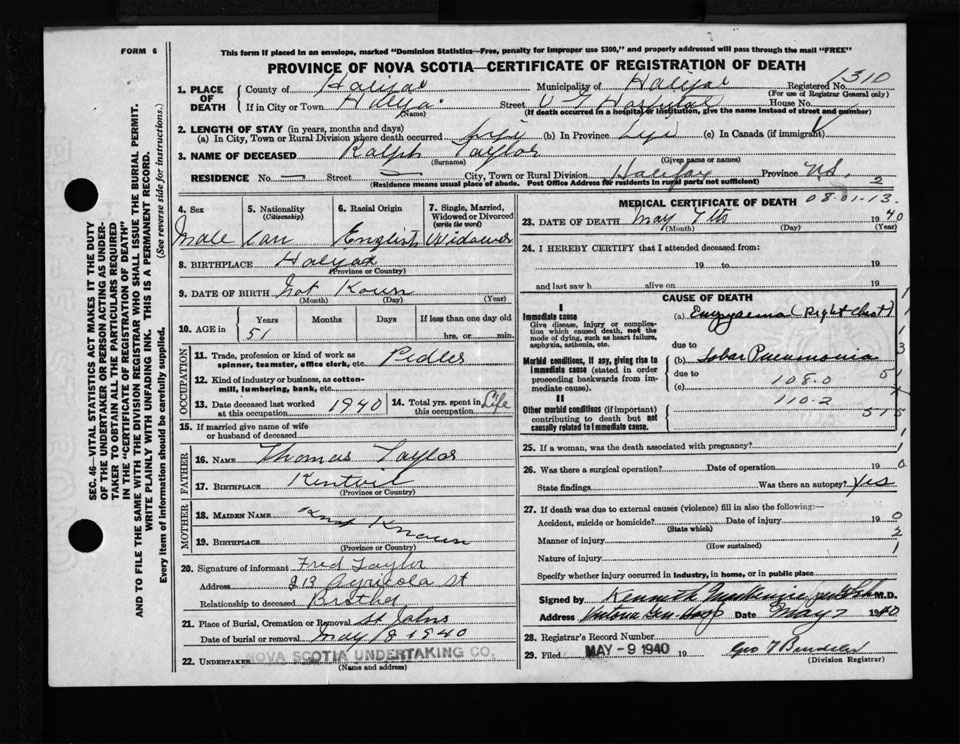 FORM 6
This form if placed in an envelope, marked "Dominion Statistics—Free, penalty for improper use $300," and properly addressed will pass through the mail "FREE"
PROVINCE OF NOVA SCOTIA—CERTIFICATE OF REGISTRATION OF DEATH
1. PLACE OF DEATH
County of Halifax Municipality of Halifax Registered No. 1310
(For use of Registrar General only)
If in City or Town Halifax Street V G Hospital House No.
(Name) (If death occurred in a hospital or institution, give the name instead of street and number)
2. LENGTH OF STAY (in years, months and days)
(a) In City, Town or Rural Division where death occurred Life (b) In Province Life (c) In Canada (if immigrant)
3. NAME OF DECEASED Ralph Taylor
(Surname) (Given name or names)
RESIDENCE No. — Street — City, Town or Rural Division Halifax Province NS.
(Residence means usual place of abode. Post Office Address for residents in rural parts not sufficient) 2
4. Sex 5. Nationality (Citizenship) 6. Racial Origin 7. Single, Married, Widowed or Divorced (write the word)
Male Can English Widower
8. BIRTHPLACE Halifax
(Province or Country)
9. DATE OF BIRTH Not Known
(Month) (Day) (Year)
10. AGE in Years Months Days If less than one day
51 hrs. or min.
OCCUPATION
11. Trade, profession or kind of work as spinner, teamster, office clerk, etc. Pedler
12. Kind of industry or business, as cotton-mill, lumbering, bank, etc.
13. Date deceased last worked at this occupation 1940 14. Total yrs. spent in this occupation Life
15. If married give name of wife or husband of deceased
FATHER
16. NAME Thomas Taylor
17. BIRTHPLACE Kentvil
(Province or Country)
MOTHER
18. MAIDEN NAME Not Known
19. BIRTHPLACE
(Province or Country)
20. Signature of informant Fred Taylor
Address 213 Agricola St
Relationship to deceased Brother
21. Place of Burial, Cremation or Removal St Johns
Date of burial or removal May 8 1940
22. UNDERTAKER NOVA SCOTIA UNDERTAKING CO.
(Name and address)
MEDICAL CERTIFICATE OF DEATH 08.01.13.
23. DATE OF DEATH May 7th 1940
(Month) (Day) (Year)
24. I HEREBY CERTIFY that I attended deceased from:
19 to 19
and last saw h alive on 19
CAUSE OF DEATH
I
Immediate cause
Give disease, injury or complication which caused death, not the mode of dying, such as heart failure, asphyxia, asthenia, etc.
(a) Empyaema (Right Chest)
due to
Morbid conditions, if any, giving rise to immediate cause (stated in order proceeding backwards from immediate cause).
(b) Lobar Pneumonia
due to
(c) 108.0
II
110-2
Other morbid conditions (if important) contributing to death but not causally related to immediate cause.
515
25. If a woman, was the death associated with pregnancy?
26. Was there a surgical operation? Date of operation 19
State findings Was there an autopsy? Yes
27. If death was due to external causes (violence) fill in also the following:—
Accident, suicide or homicide? Date of injury 19
(State which)
Manner of injury
(How sustained)
Nature of injury
Specify whether injury occurred in industry, in home, or in public place
Signed by Kenneth Mackenzie M.D.
Address Victoria Gen. Hosp Date May 7 1940
28. Registrar's Record Number
29. Filed MAY - 9 1940 19
(Division Registrar)
SEC. 46—VITAL STATISTICS ACT MAKES IT THE DUTY
OF THE UNDERTAKER OR PERSON ACTING AS UNDERTAKER
TO OBTAIN ALL THE PARTICULARS REQUIRED
IN THE "CERTIFICATE OF REGISTRATION OF DEATH"
AND TO FILE THE SAME WITH THE DIVISION REGISTRAR WHO SHALL ISSUE THE BURIAL PERMIT.
WRITE PLAINLY WITH UNFADING INK. THIS IS A PERMANENT RECORD.
Every item of information should be carefully supplied. (See reverse side for instructions.)